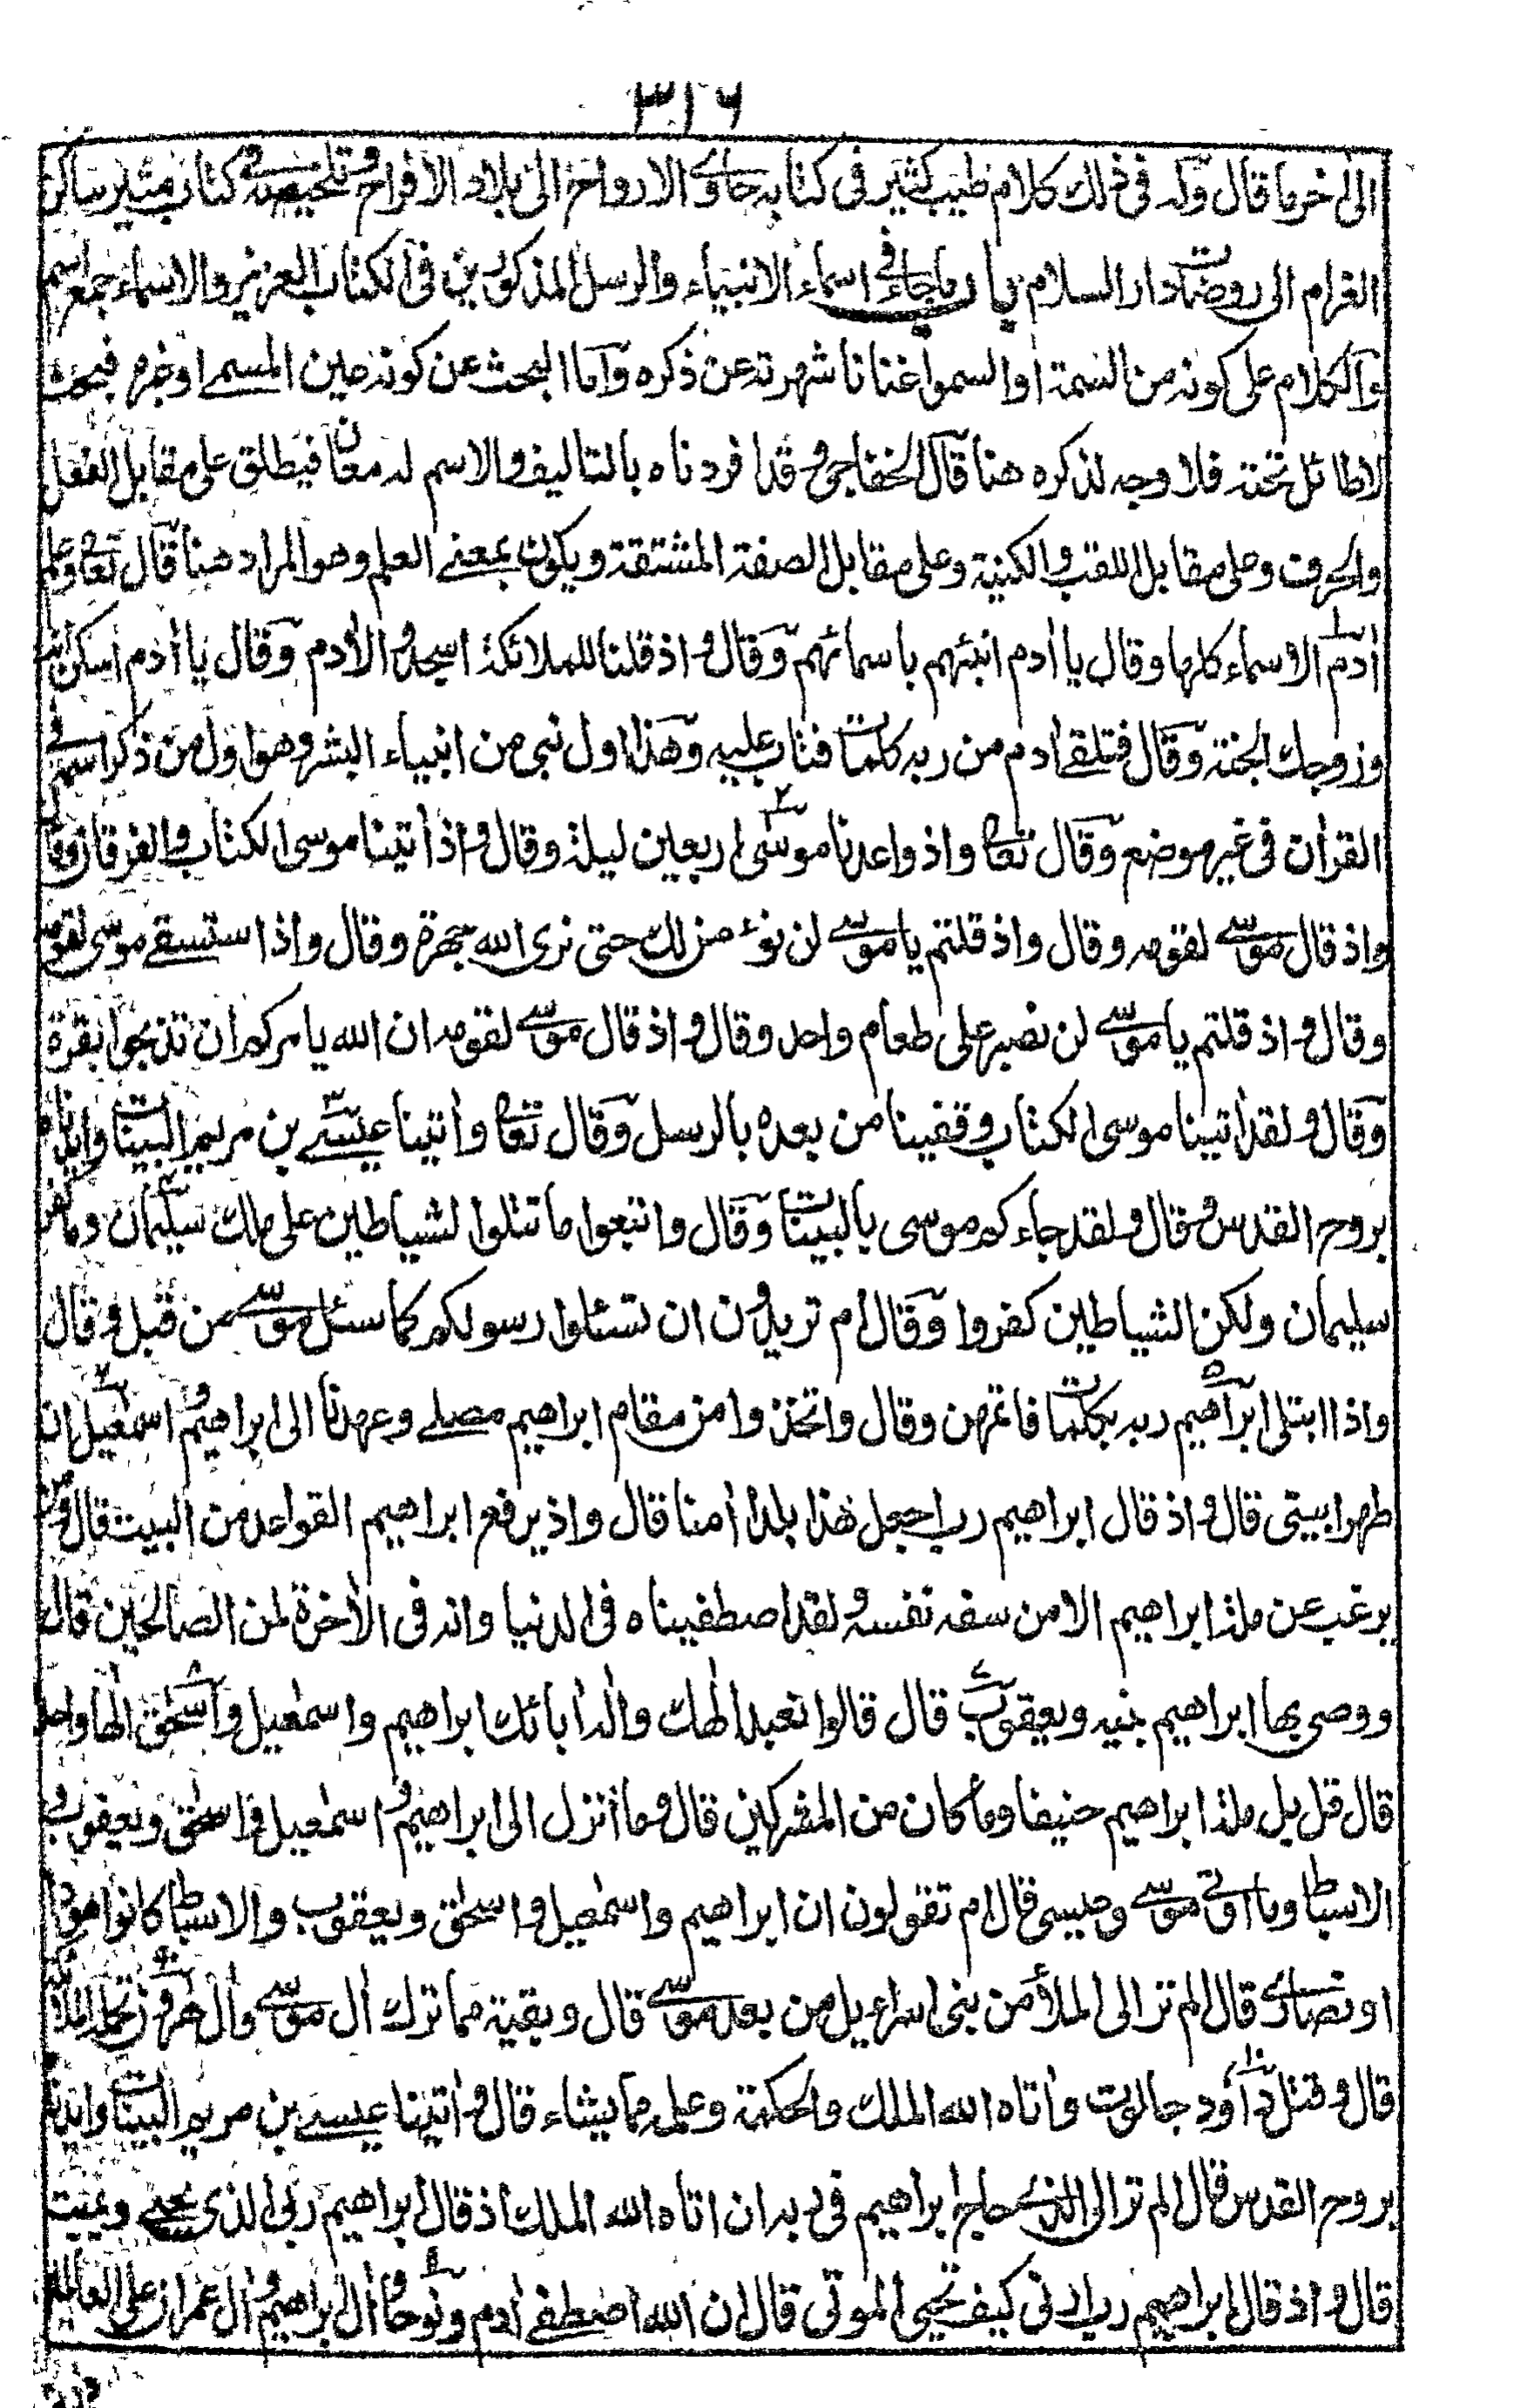 ٣١٦
الى اخر ما قال وله فى ذلك كلام طيب كثير فى كتابه حاوى الارواح الى بلاد الافراح وتلخيصه فى كتاب مثير ساكن
الغرام الى روضات دار السلام باب ما جاء فى اسماء الانبياء والرسل المذكورين فى الكتاب العزيز والاسماء جمع اسم
والكلام على كونه من السمة او السمو اغنانا شهرته عن ذكره واما البحث عن كونه عين المسمى او غيره فبحث
لا طائل تحته فلا وجه لذكره هنا قال الخفاجى وقد افردناه بالتاليف والاسم له معان فيطلق على مقابل الفعل
والحرف وعلى مقابل اللقب والكنية وعلى مقابل الصفة المشتقة ويكون بمعنى العلم وهو المراد هنا قال تعا وعلم
اٰدم الاسماء كلها وقال يا ادم انبئهم باسمائهم وقال واذ قلنا للملائكة اسجدوا لاٰدم وقال يا اٰدم اسكن انت
وزوجك الجنة وقال فتلقى ادم من ربه كلمات فتاب عليه وهذا اول نبى من انبياء البشر وهو اول من ذكر اسمه فى
القراٰن فى غير موضع وقال تعا واذ واعدنا موسى اربعين ليلة وقال واذ اٰتينا موسى الكتاب والفرقان وقال
واذ قال موسى لقومه وقال واذ قلتم يا موسى لن نؤمن لك حتى نرى الله جهرة وقال واذ استسقى موسى لقومه
وقال واذ قلتم يا موسى لن نصبر على طعام واحد وقال واذ قال موسى لقومه ان الله يامركم ان تذبحوا بقرة
وقال ولقد اٰتينا موسى الكتاب وقفينا من بعده بالرسل وقال تعا واٰتينا عيسى بن مريم البينات وايدناه
بروح القدس وقال ولقد جاءكم موسى بالبينات وقال واتبعوا ما تتلوا لشياطين على ملك سليمان وما كفر
سليمان ولكن الشياطين كفروا وقال ام تريدون ان تسئلوا رسولكم كما سئل موسى من قبل وقال
واذا ابتلى ابراهيم ربه بكلمات فاتمهن وقال واتخذوا من مقام ابراهيم مصلى وعهدنا الى ابراهيم واسمٰعيل ان
طهرا بيتى قال واذ قال ابراهيم رب اجعل هٰذا بلدا اٰمنا قال واذ يرفع ابراهيم القواعد من البيت قال ومن
يرغب عن ملة ابراهيم الا من سفه نفسه ولقد اصطفيناه فى الدنيا وانه فى الاٰخرة لمن الصالحين قال
ووصى بها ابراهيم بنيه ويعقوب قال قالوا نعبد الٰهك والٰه اٰبائك ابراهيم واسمٰعيل واسحٰق الٰها واحدا
قال قل بل ملة ابراهيم حنيفا وما كان من المشركين قال وما انزل الى ابراهيم واسمٰعيل واسحٰق ويعقوب و
الاسباط وما اوتى موسى وعيسى قال ام تقولون ان ابراهيم واسمٰعيل واسحٰق ويعقوب والاسباط كانوا هودا
او نصارى قال الم تر الى الملأ من بنى اسراءيل من بعد موسى قال وبقية مما ترك اٰل موسى واٰل هٰرون تحمله الملائكة
قال وقتل داوٗد جالوت واٰتاه الله الملك والحكمة وعلمه مما يشاء قال واٰتينا عيسى بن مريم البينات وايدناه
بروح القدس قال الم تر الى الذى حاج ابراهيم فى ربه ان اٰتاه الله الملك اذ قال ابراهيم ربى الذى يحيى ويميت
قال واذ قال ابراهيم رب ارنى كيف تحيى الموتى قال ان الله اصطفى اٰدم ونوحا واٰل ابراهيم واٰل عمران على العالمين